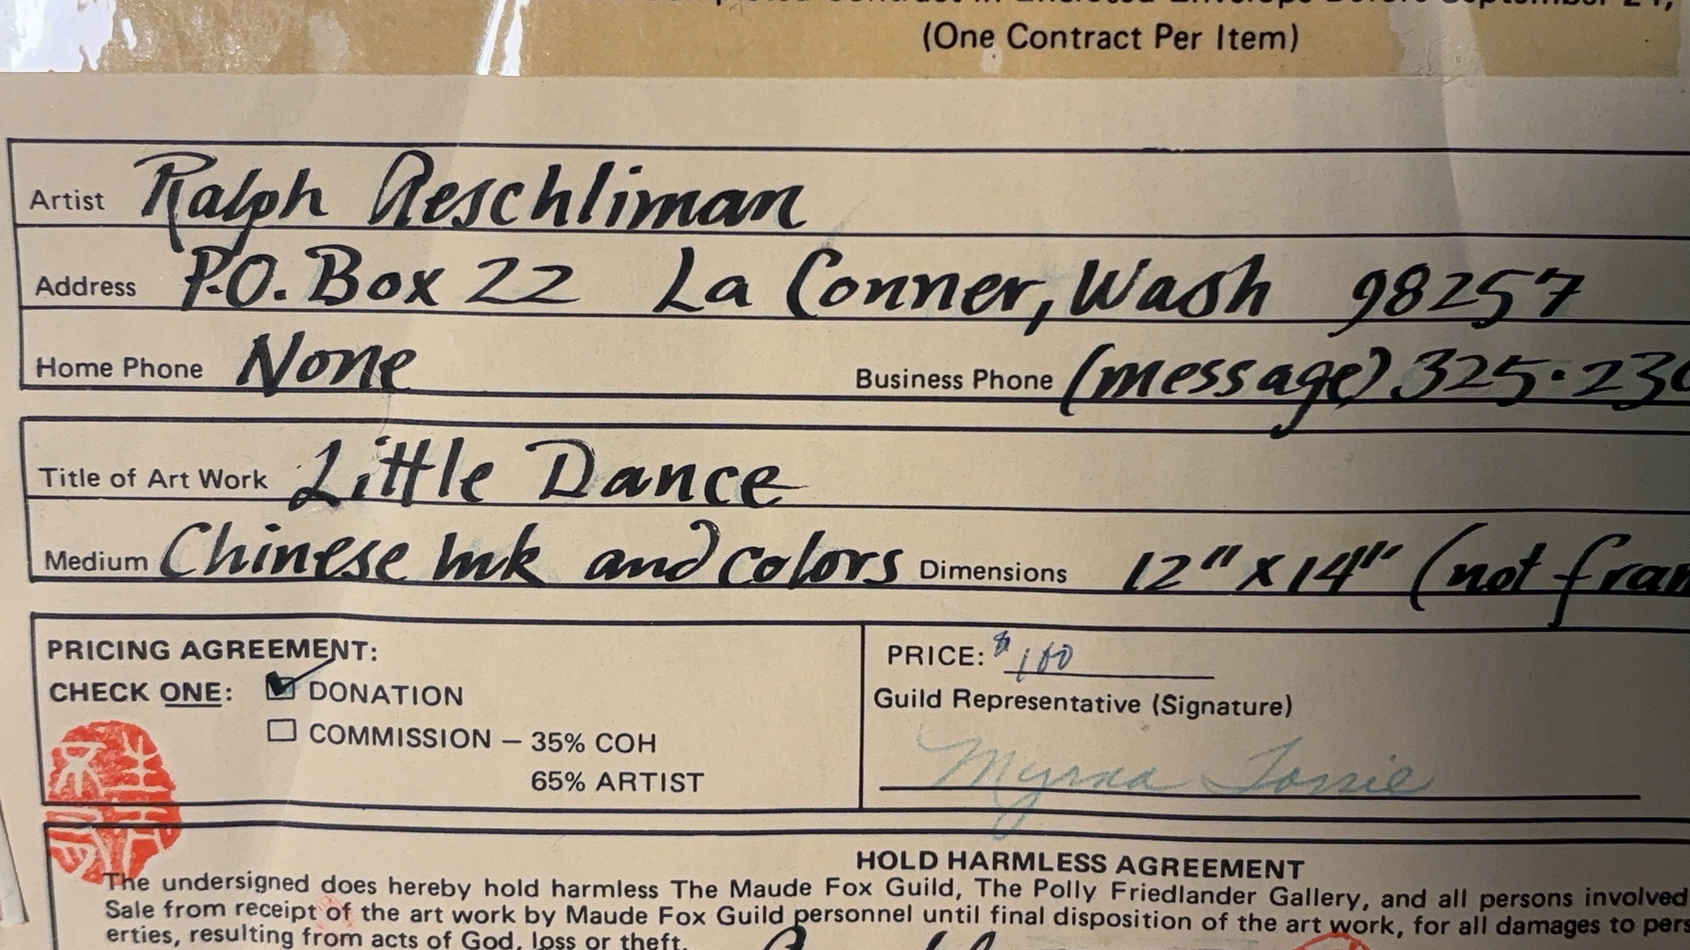 (One Contract Per Item)
Artist Ralph Aeschliman
Address P.O. Box 22 La Conner, Wash 98257
Home Phone None Business Phone (message) 325·230
Title of Art Work Little Dance
Medium Chinese Ink and colors Dimensions 12" x 14" (not fram
PRICING AGREEMENT:
CHECK ONE: DONATION
COMMISSION – 35% COH
65% ARTIST
PRICE: $100
Guild Representative (Signature)
Myrna
HOLD HARMLESS AGREEMENT
The undersigned does hereby hold harmless The Maude Fox Guild, The Polly Friedlander Gallery, and all persons involved
Sale from receipt of the art work by Maude Fox Guild personnel until final disposition of the art work, for all damages to pers
erties, resulting from acts of God, loss or theft.